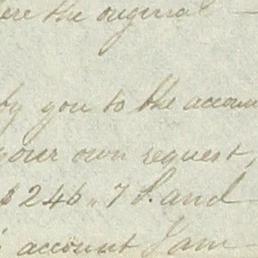 the original
by you to the accoun
your own request,
$246.,7 S. and
account I am